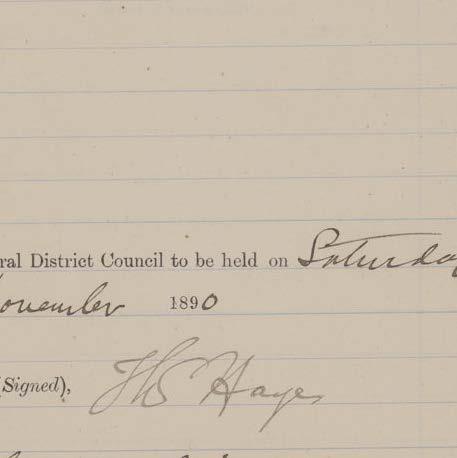 ral District Council to be held on Saturday
November 1890
(Signed), H S Hayes